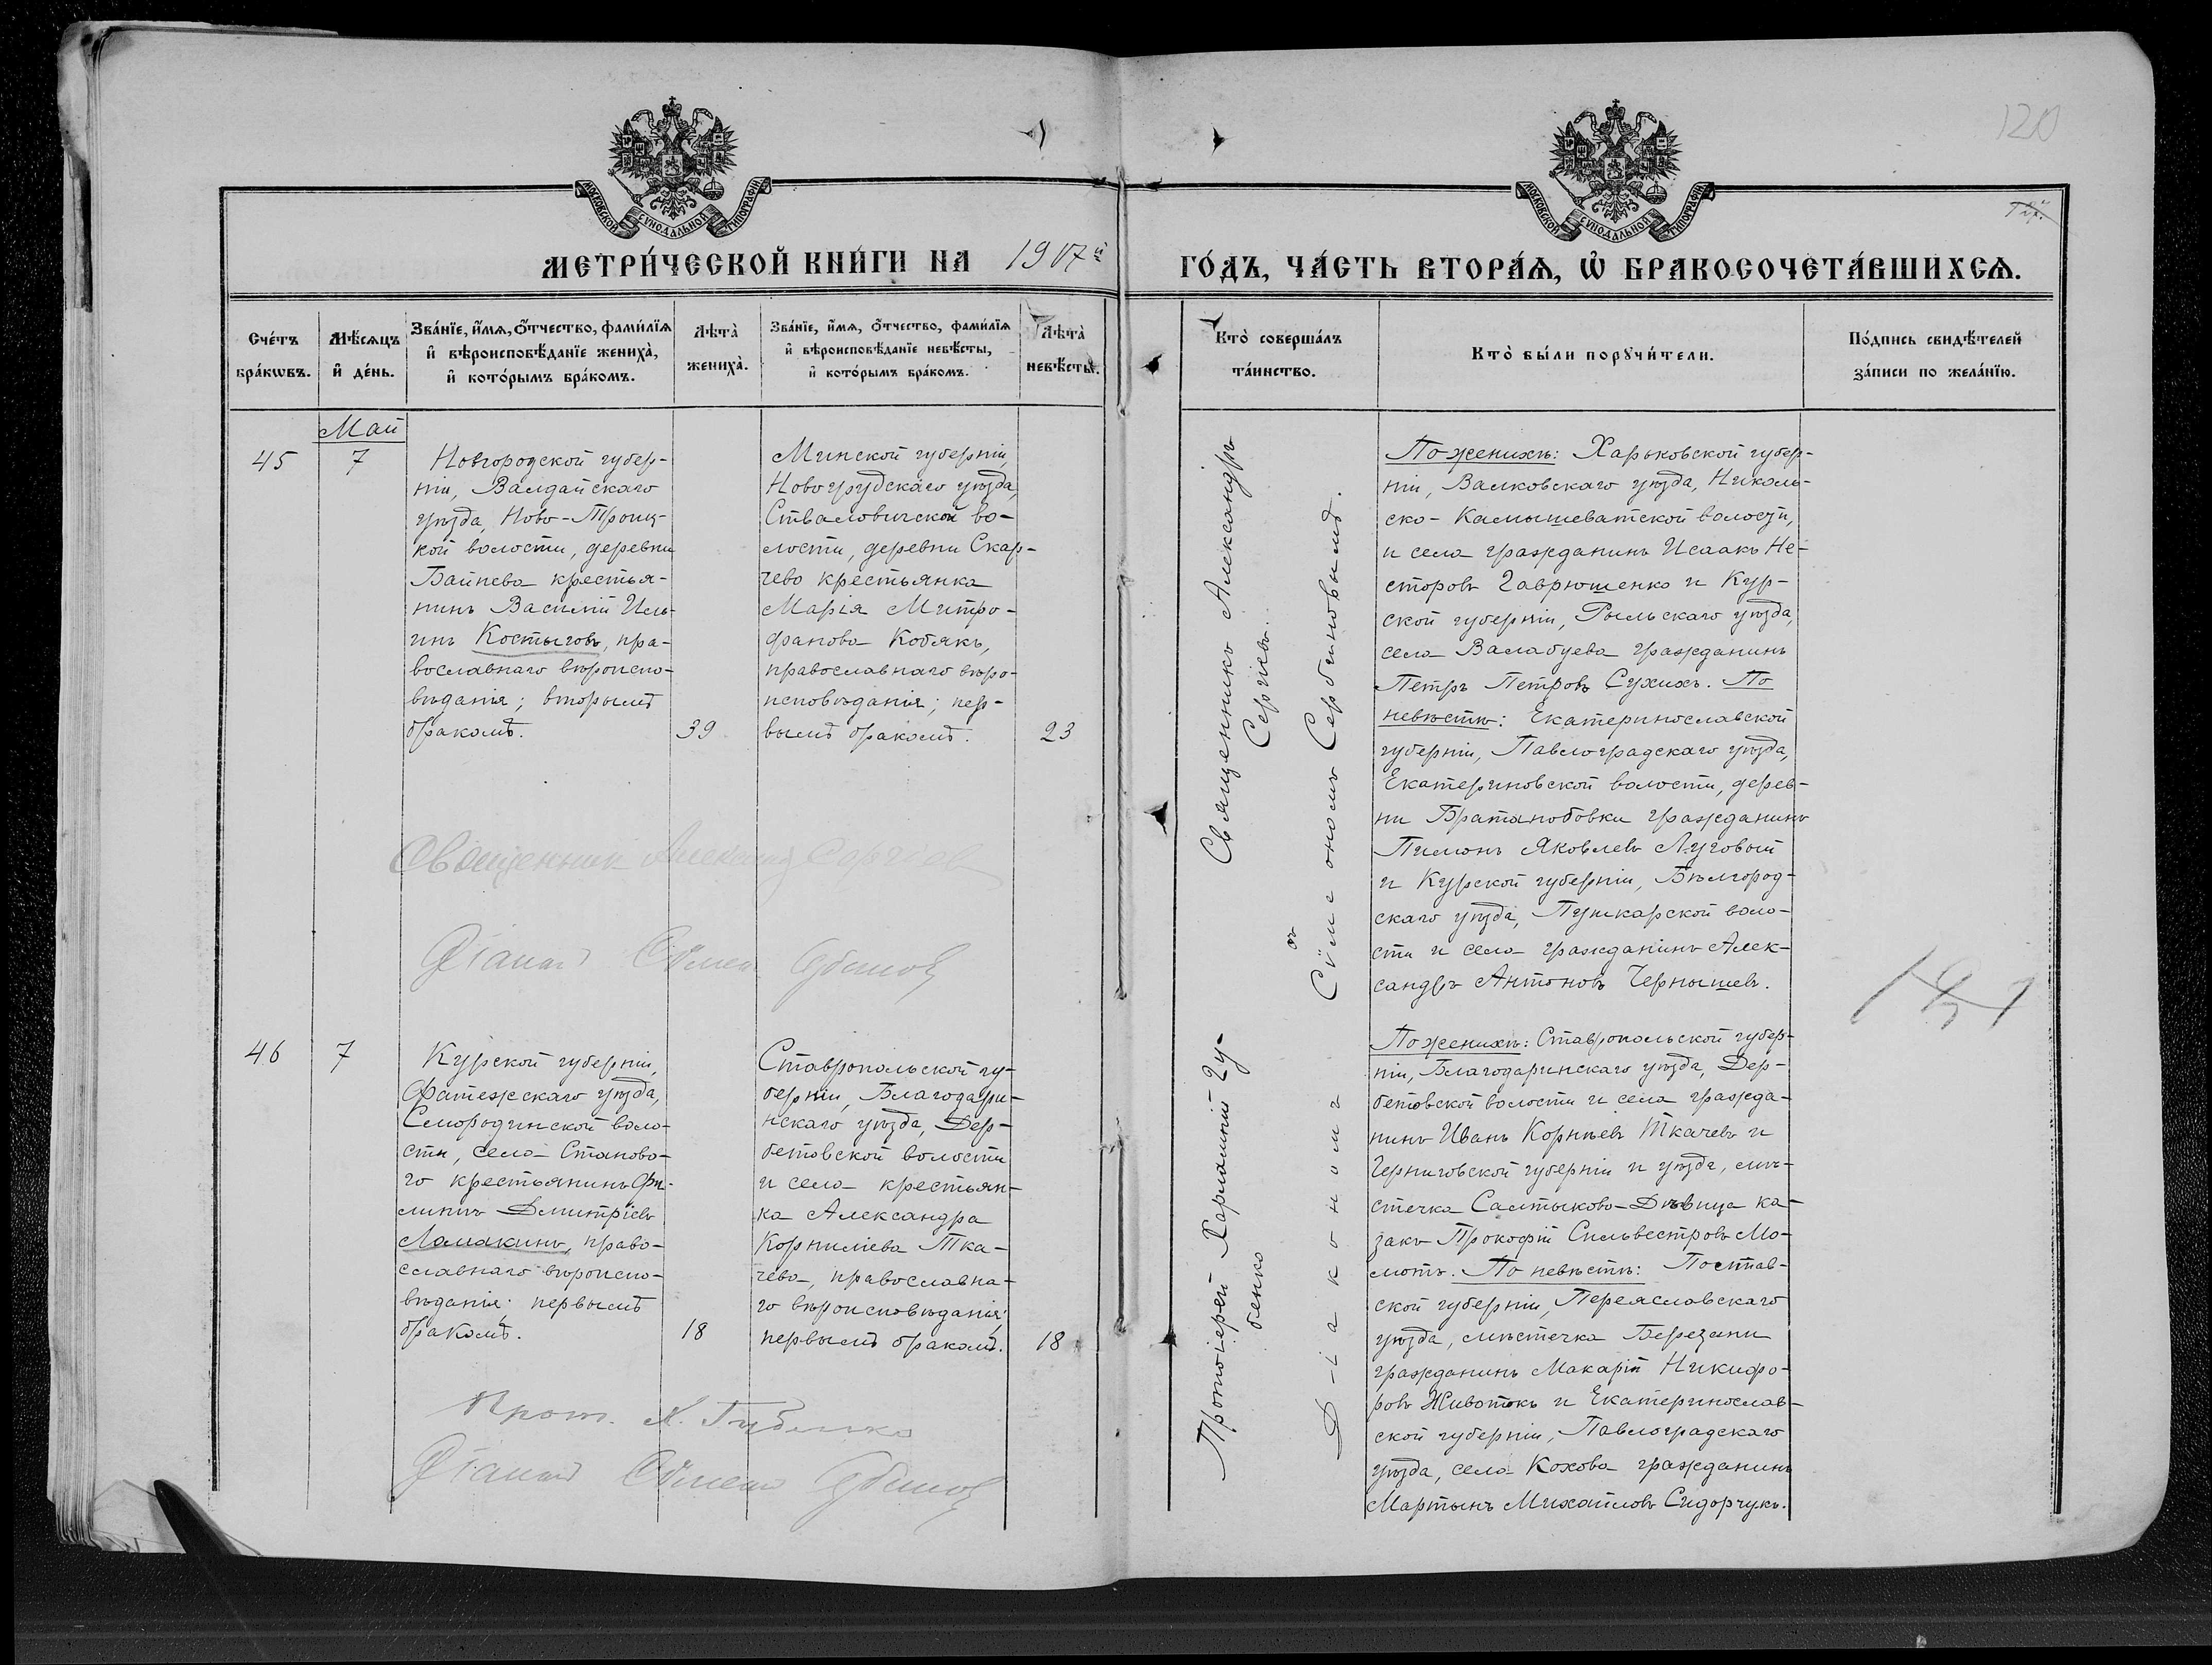 120
МОСКОВСКОЙ СѴНОДАЛЬНОЙ ТИПОГРАФІИ
МОСКОВСКОЙ СѴНОДАЛЬНОЙ ТИПОГРАФІИ
МЕТРИ́ЧЕСКОЙ КНИ́ГИ НА 1907й ГО́ДЪ, ЧА́СТЬ ВТОРА́Я, Ѡ҆ БРАКОСОЧЕТА́ВШИХСѦ.
Сче́тъ
бра́кѡвъ.
Мѣ́сѧцъ
и҆ де́нь.
Зва́нїе, и҆́мѧ, ѻ҆́тчество, фами́лїѧ
и҆ вѣроисповѣ́данїе жениха̀,
и҆ кото́рымъ бра́комъ.
Лѣта̀
жениха̀.
Зва́нїе, и҆́мѧ, ѻ҆́тчество, фами́лїѧ
и҆ вѣроисповѣ́данїе невѣ́сты,
и҆ кото́рымъ бра́комъ.
Лѣта̀
невѣ́сты.
Кто̀ соверша́лъ
та́инство.
Кто̀ бы́ли порꙋчи́тели.
По́дпись свидѣ́телей
за́писи по жела́нїю.
Май
45
7
Новгородской губер-
ніи, Валдайскаго
уѣзда, Ново-Троиц-
кой волости, деревни
Байнева крестья-
нинъ Василій Иль-
инъ Костыговъ, пра-
вославнаго вѣроиспо-
вѣданія; вторымъ
бракомъ.
39
Минской губерніи,
Новогрудскаго уѣзда,
Ствáловичской во-
лости, деревни Скар-
чево крестьянка
Марія Митро-
фанова Кобякъ,
православнаго вѣро-
исповѣданія; пер-
вымъ бракомъ.
23
Священникъ Александръ
Сергіевъ.
съ
Сѵмеономъ Сербиновымъ.
По женихѣ: Харьковской губер-
ніи, Валковскаго уѣзда, Николь-
ско-Камышеватской волости,
и села гражданинъ Исаакъ Не-
сторовъ Гаврюшенко и Кур-
ской губерніи, Рыльскаго уѣзда,
села Валабуева гражданинъ
Петръ Петровъ Сухихъ. По
невѣстѣ: Екатеринославской
губерніи, Павлоградскаго уѣзда,
Екатериновской волости, дерев-
ни Братанобовки гражданинъ
Пимонъ Яковлевъ Луговый
и Курской губерніи, Бѣлгород-
скаго уѣзда, Пушкарской воло-
сти и села гражданинъ Алек-
сандръ Антоновъ Чернышевъ.
Священник Александ Сергіев
Діаконъ Сѵмеон Сербинов
46
7
Курской губерніи,
Фатежскаго уѣзда,
Смородинской воло-
сти, села Станово-
го крестьянинъ Фи-
липпъ Димитріевъ
Ломакинъ, право-
славнаго вѣроиспо-
вѣданія; первымъ
бракомъ.
18
Ставропольской гу-
берніи, Благодари-
нскаго уѣзда, Дер-
бетовской волости
и села крестьян-
ка Александра
Корниліева Тка-
чева, православна-
го вѣроисповѣданія;
первымъ бракомъ.
18
Протоіерей Харлампій Гу-
бенко
Діаконом
По женихѣ: Ставропольской губер-
ніи, Благодаринскаго уѣзда, Дер-
бетовской волости и села гражда-
нинъ Иванъ Корнѣевъ Ткачевъ и
Черниговской губерніи и уѣзда, мѣ-
стечка Салтыково-Дѣвица ка-
закъ Прокофій Сильвестровъ Мо-
лотъ. По невѣстѣ: Полтав-
ской губерніи, Переяславскаго
уѣзда, мѣстечка Березани
гражданинъ Макарій Никифо-
ровъ Животокъ и Екатеринослав-
ской губерніи, Павлоградскаго
уѣзда, села Кохова гражданинъ
Мартынъ Михайловъ Сидорчукъ.
Прот. Х. Губенко
Діаконъ Сѵмеон Сербинов